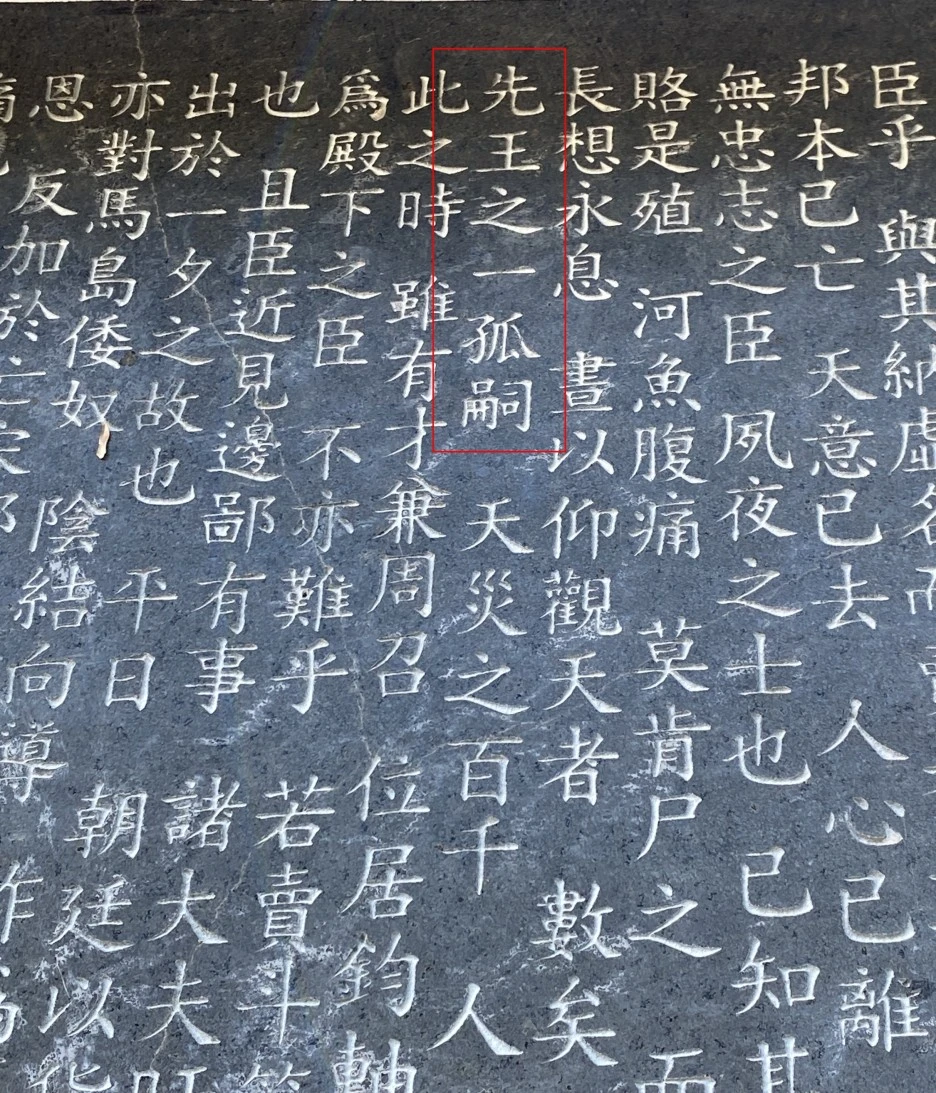 臣乎 與其納虛名而
邦本已亡 天意已去 人心已離
無忠志之臣 夙夜之士也 已知其
賂是殖 河魚腹痛 莫肯尸之 而
長想永息 晝以仰觀天者 數矣
先王之一孤嗣 天災之百千 人
此之時 雖有才兼周召 位居鈞軸
爲殿下之臣 不亦難乎 若賣斗筲
也 且臣近見邊鄙有事 諸大夫旰
出於一夕之故也 平日 朝廷以
亦對馬島倭奴 陰結向導 作
恩 反加於亡宋